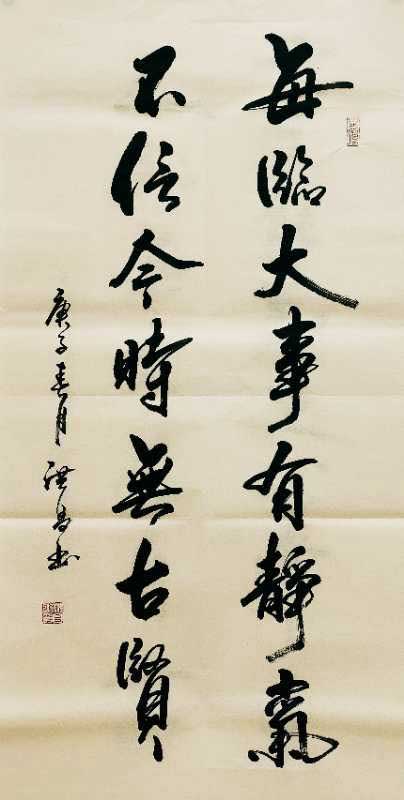 每臨大事有靜氣
不信今時無古賢
庚子春月洪昌书